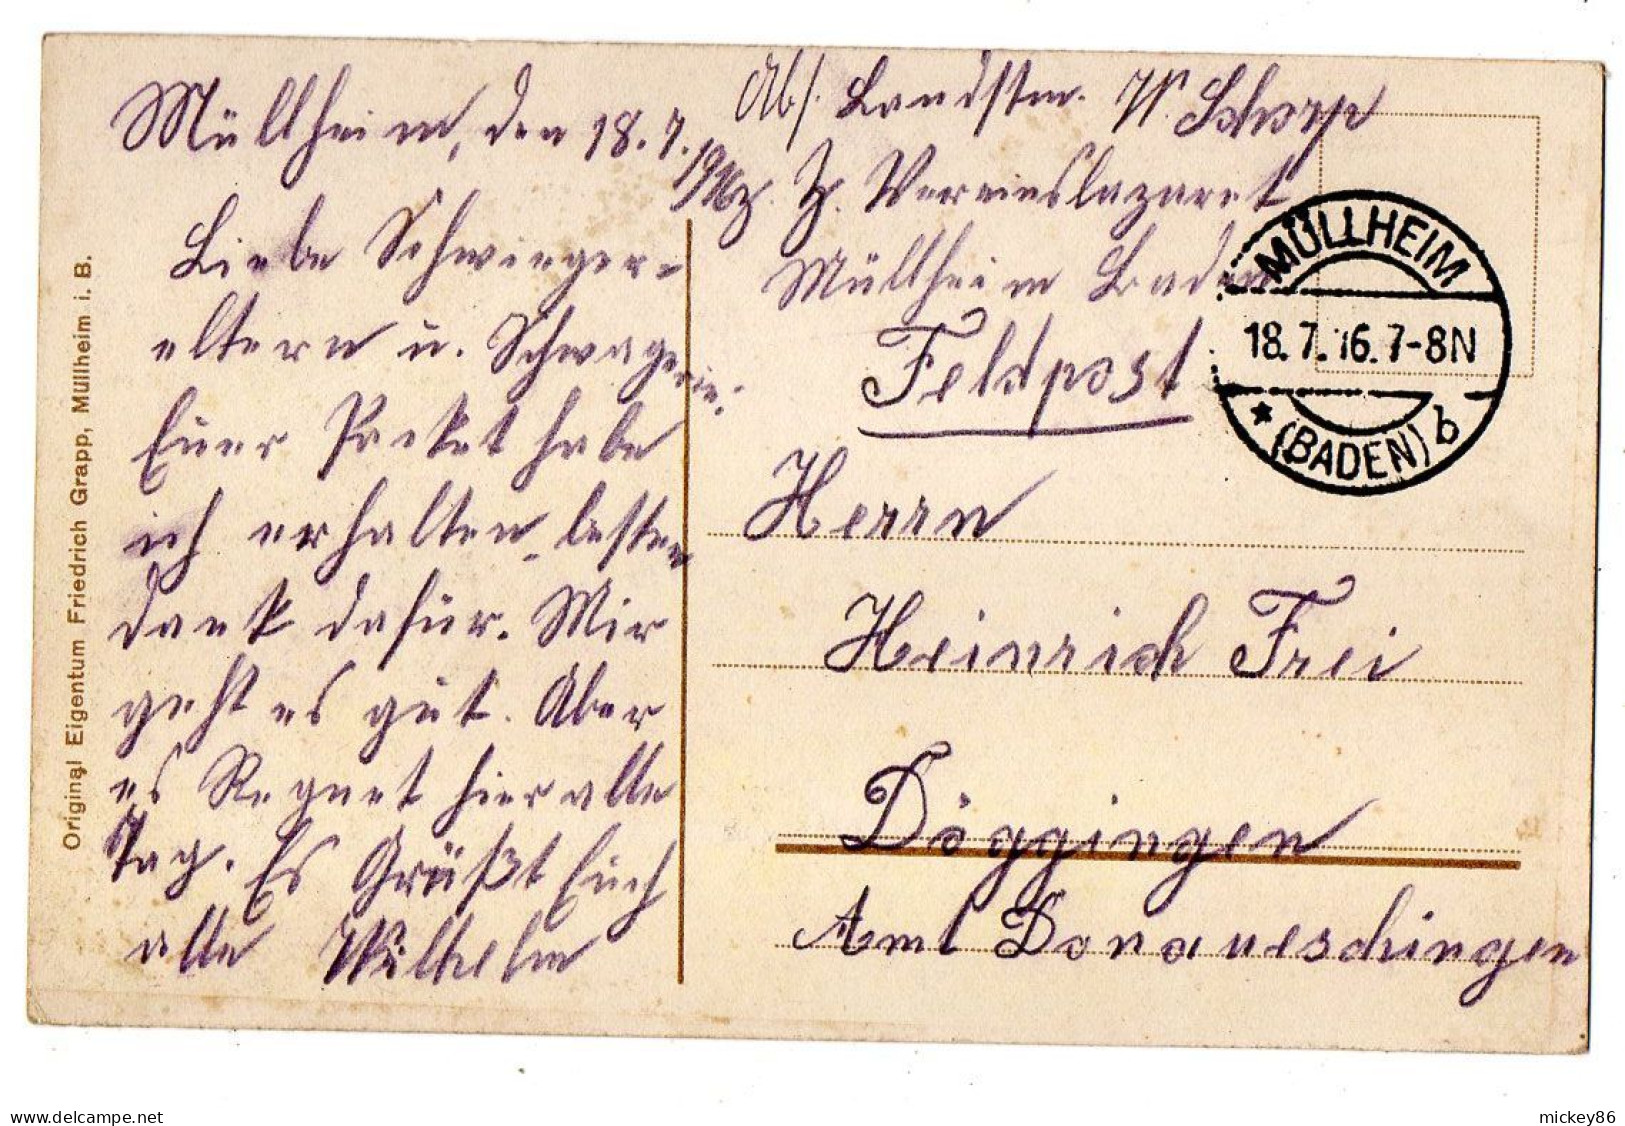 Müllheim, den 18.7.1916
Liebe Schwieger-
eltern u. Schwagerin!
Euer Packet habe
ich erhalten, besten
dank dafür. Mir
geht es gut. Aber
es Regnet hier alle
Tag. Es Grüßt Euch
alle Wilhelm
Abs. Landstm. W. Schorp
z. Z. Vereinslazaret
Müllheim Baden
Feldpost
MÜLLHEIM
18.7.16.7-8N
* (BADEN) b
Herrn
Heinrich Frei
Döggingen
Amt Donaueschingen
Original Eigentum Friedrich Grapp, Müllheim i. B.
mickey86
www.delcampe.net